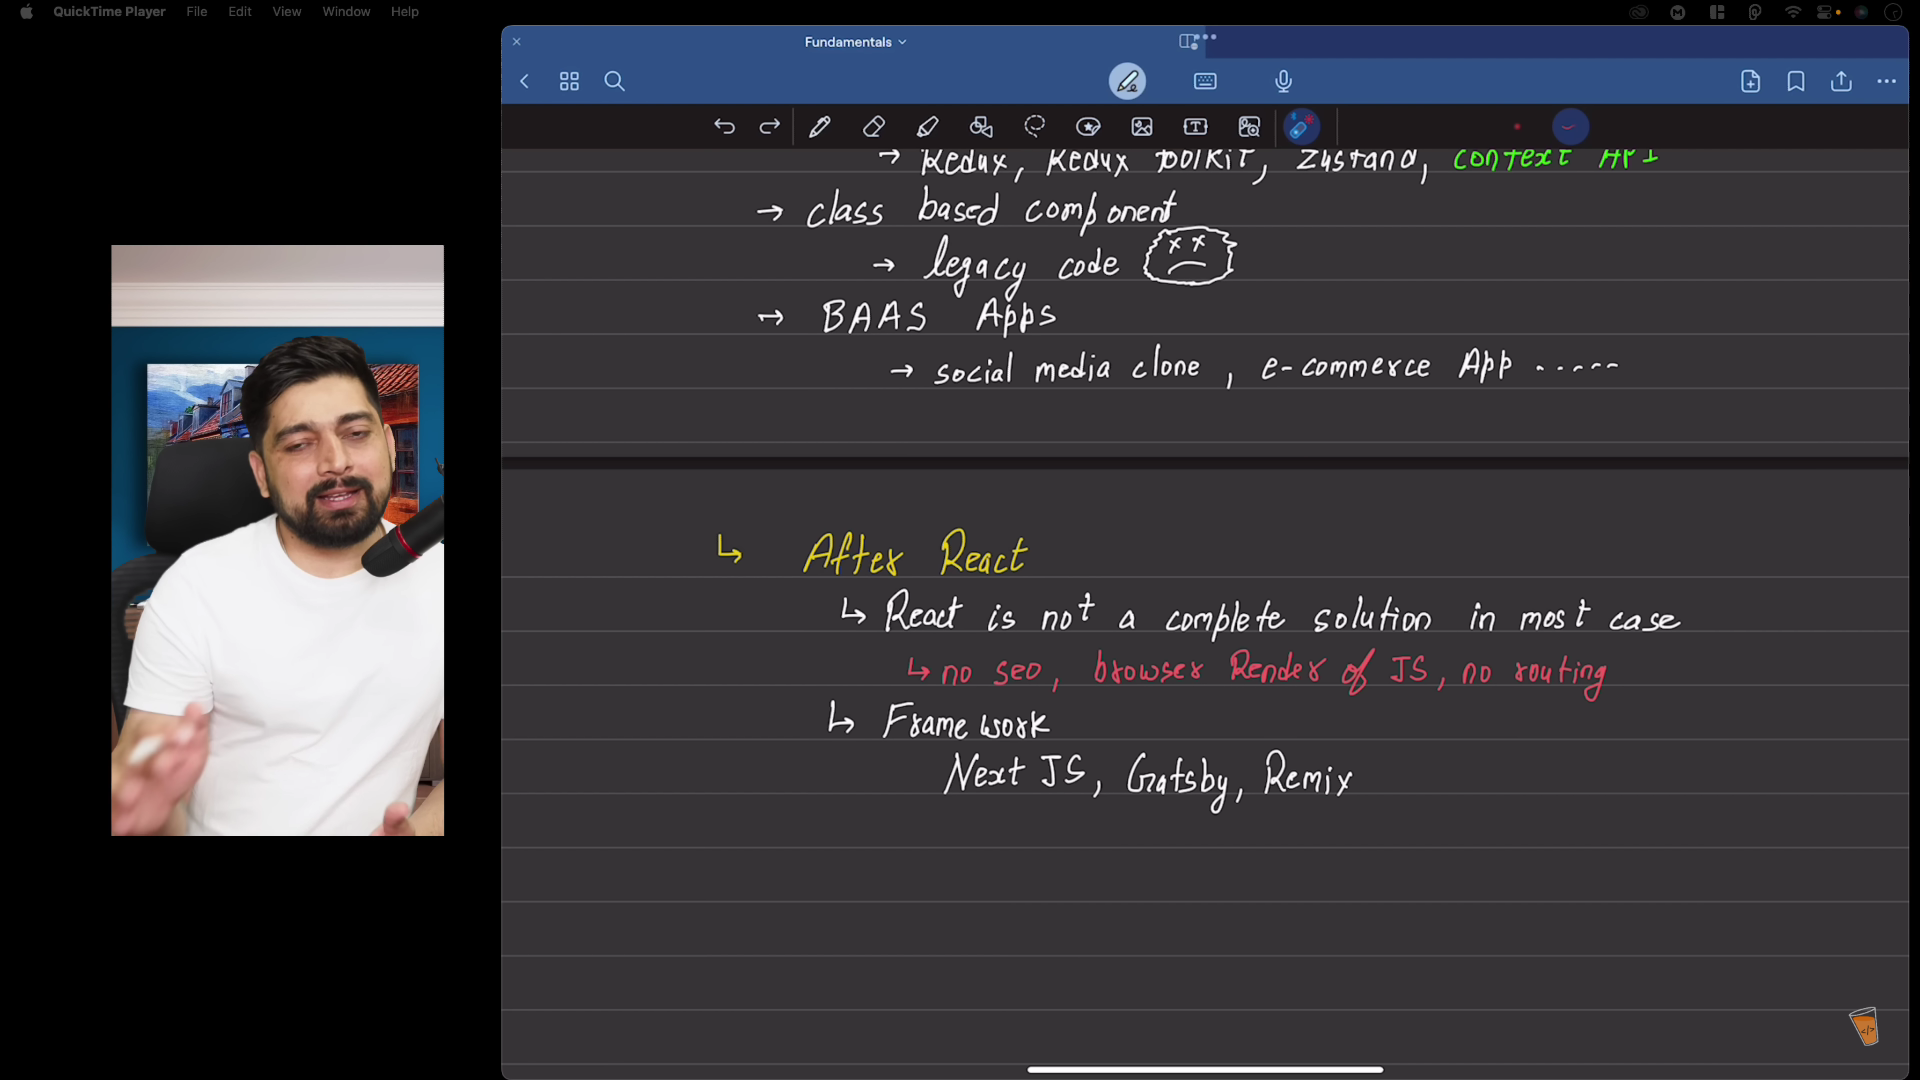 QuickTime Player File Edit View Window Help
Fundamentals
→ Redux, Redux toolkit, zustand, context API
→ class based component
→ legacy code
→ BAAS Apps
→ social media clone, e-commerce App .....
↳ After React
↳ React is not a complete solution in most case
↳ no seo, browser Render of JS, no routing
↳ Frame work
Next JS, Gatsby, Remix